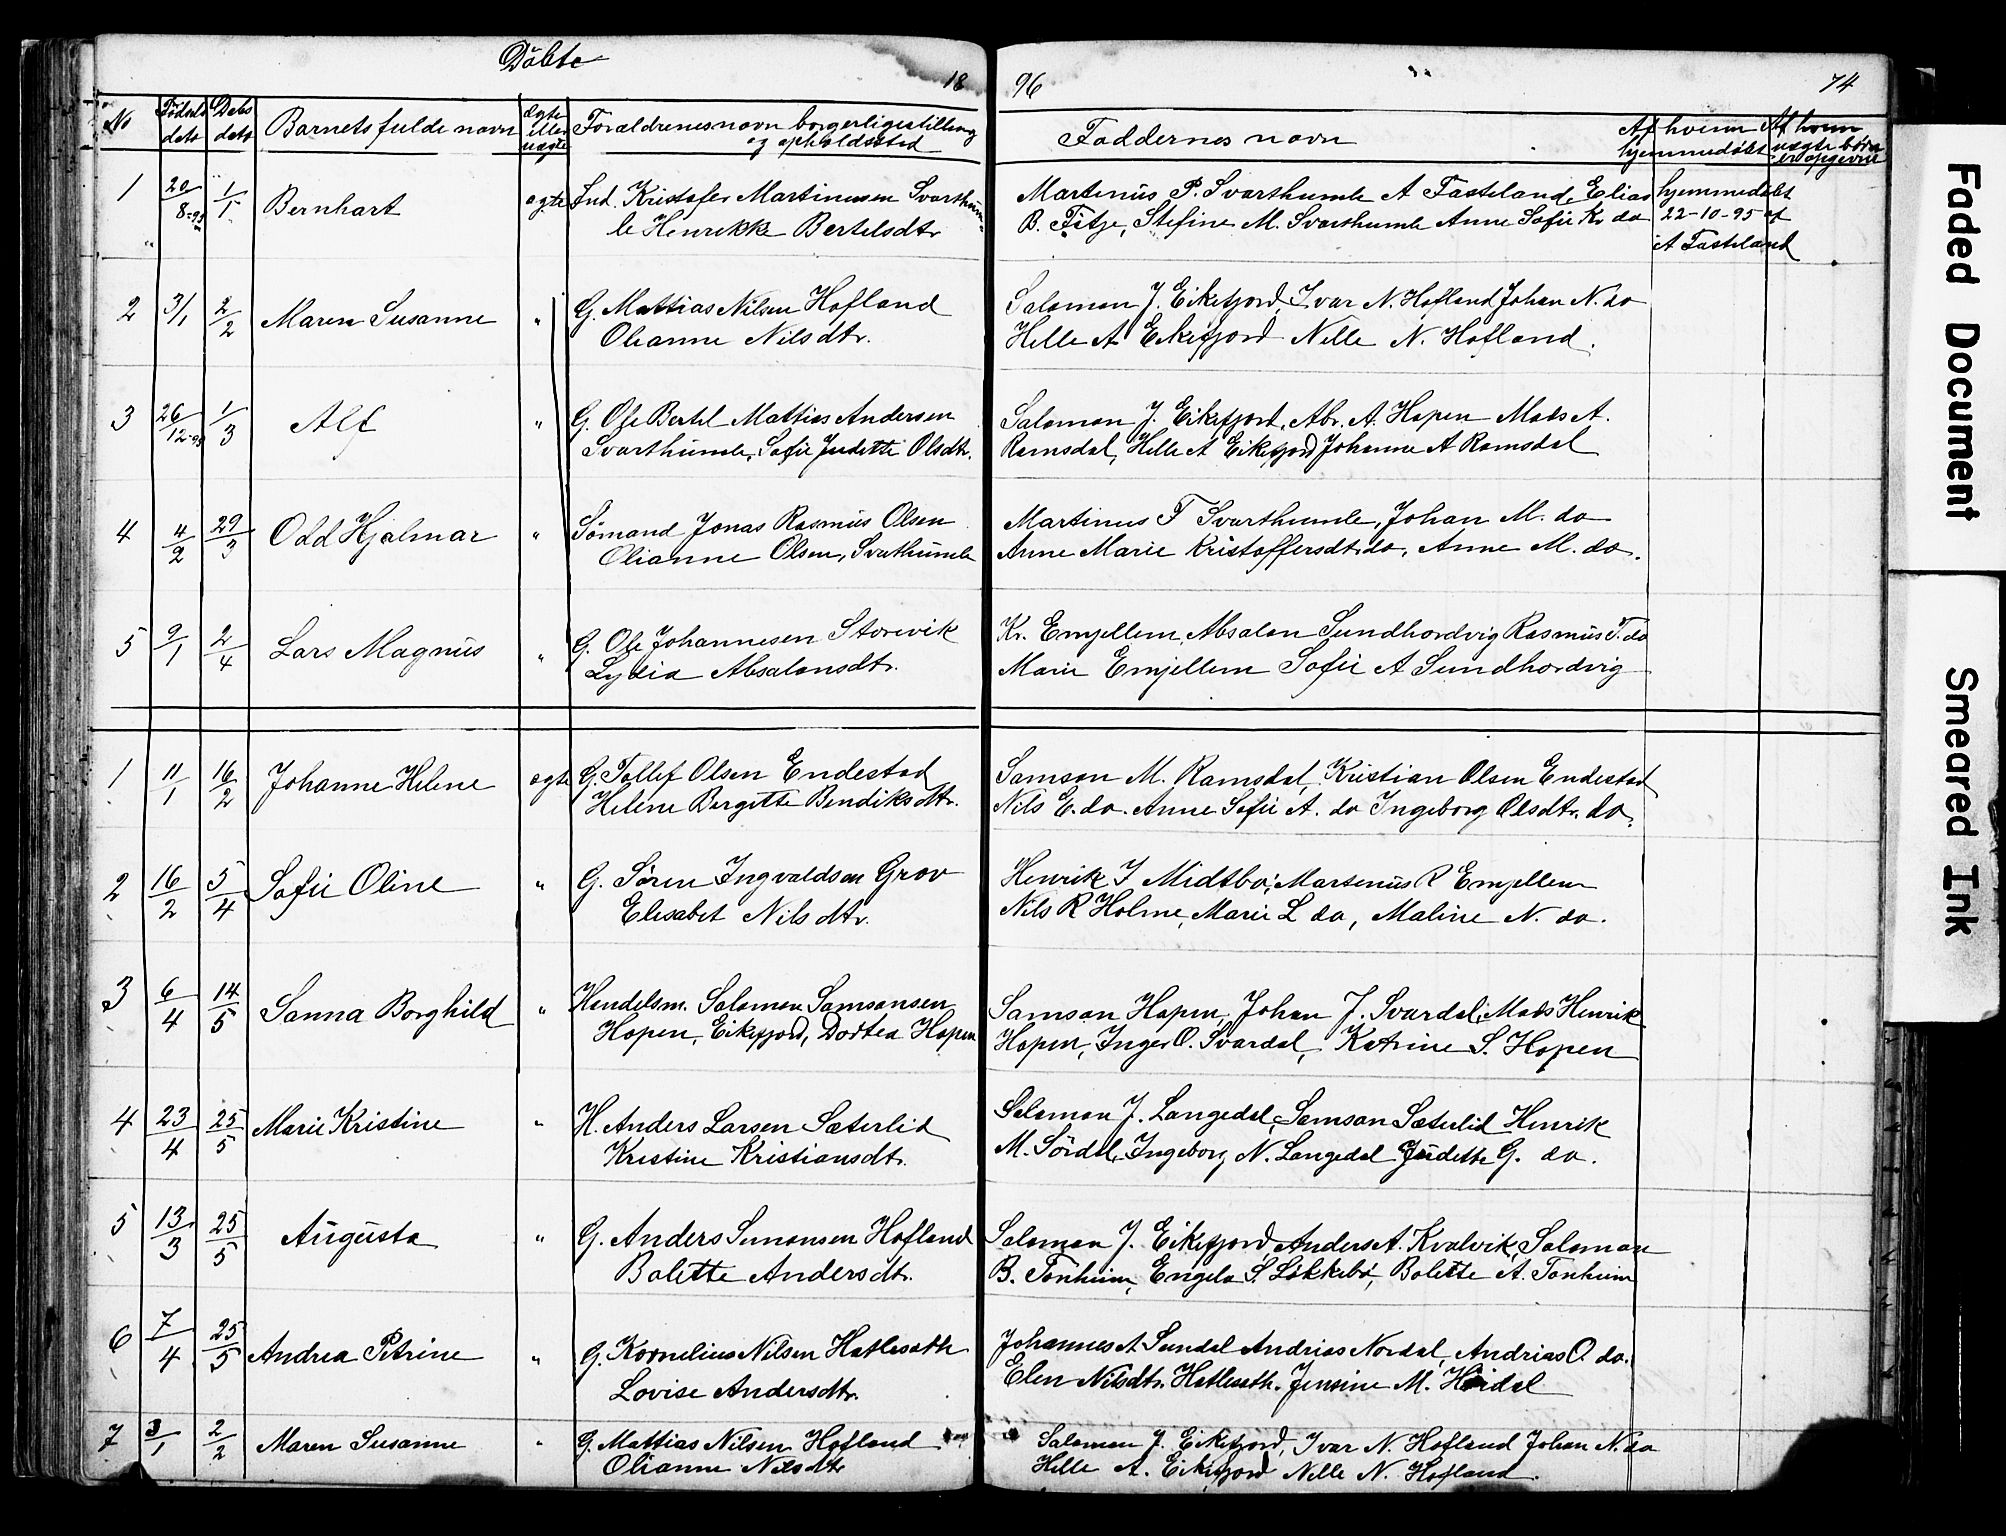 Döbte
18 96 74
No Fødsels dato Daabs dato Barnets fulde navn Ægte eller uægte Forældrenes navn borgerligestilling og opholdssted Faddernes navn Af hvem hjemmedøbt Af hvem uægte børn er opgevne
1 20/8-95 1/1 Bernhart ægte Ind. Kristofer Martinusen Svarthum- Martinus P. Svarthumle A Fasteland, Elias hjemmedøbt
le Henrikke Bertelsdtr B. Fitje, Stefine M. Svarthumle Anne Sofie Kr. do 22-10-95 af
A Fasteland
2 3/1 2/2 Maren Susanne " G. Mattias Nilsen Hofland Salomon J. Eikefjord, Ivar N. Hofland Johan N. do
Olianne Nilsdtr. Helle A Eikefjord Nelle N. Hofland.
3 26/12-95 1/3 Alf " G. Ole Bertel Mattias Andersen Salomon J. Eikefjord, Abr. A. Hopen Mads A.
Svarthumle, Sofie Judette Olsdtr. Ramsdal, Helle A Eikefjord Johanne A Ramsdal
4 4/2 29/3 Odd Hjalmar " Sømand Jonas Rasmus Olsen Martinus T Svarthumle, Johan M. do
Olianne Olsen, Svarthumle Anne Marie Kristoffersdt. do, Anne M. do.
5 9/1 2/4 Lars Magnus " G. Ole Johannesen Storevik Kr. Emjellem, Absalon Sundhordvig Rasmus T. do
Lydia Absalonsdtr. Marie Emjellem Sofie A Sundhordvig
1 11/1 16/2 Johanne Helene ægte G. Tollef Olsen Endestad Samson M. Ramsdal, Kristian Olsen Endestad
Helene Bergitte Bendiksdtr. Nils E. do. Anne Sofie A. do Ingeborg Olsdtr. do.
2 16/2 5/4 Sofie Oline " G. Søren Ingvaldsen Grov Henrik I Midtbø, Martenus R Emjellem
Elisabet Nilsdtr. Nils R Holme, Marie L do, Maline N. do.
3 6/4 14/5 Sanna Borghild " Handelsm. Salomon Samsonsen Samson Hopen, Johan J. Svardal, Mads Henrik
Hopen, Eikefjord, Dortea Hopen Hopen, Inger O. Svardal, Katrine S. Hopen
4 23/4 25/5 Marie Kristine " H. Anders Larsen Sæterlid Salomon J. Langedal, Samson Sæterlid Henrik
Kristine Kristiansdtr. M. Sørdal, Ingeborg N. Langedal Judette G. do.
5 13/3 25/5 Augusta " G. Anders Simonsen Hofland Salomon J. Eikefjord, Anders A. Kvalvik, Salomon
Bolette Andersdtr. B. Tonheim, Engela S. Løkkebø, Bolette A. Tonheim
6 7/4 25/5 Andrea Petrine " G. Kornelius Nilsen Hatleseth Johannes A Sundal Andrias Nordal, Andrias O. do.
Lovise Andersdtr. Elen Nilsdtr. Hatleseth. Jensine M. Heidal
7 3/1 2/2 Maren Susanne " G. Mattias Nilsen Hofland Salomon J. Eikefjord, Ivar N. Hofland Johan N. do
Olianne Nilsdtr Helle A. Eikefjord Nelle N. Hofland.
Faded Document
Smeared Ink